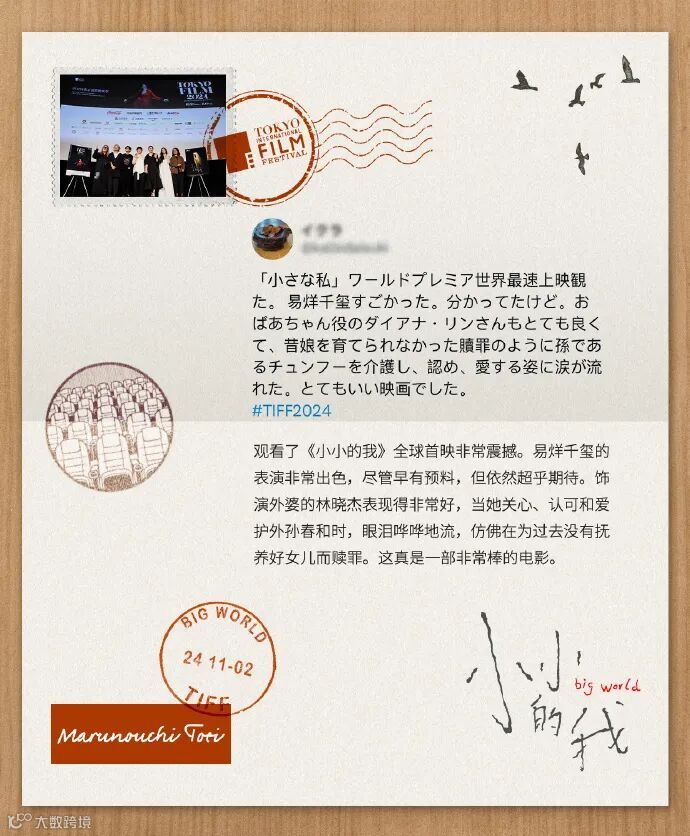 TOKYO
FILM
2024
TOKYO
INTERNATIONAL
FILM
FESTIVAL
イテラ
「小さな私」ワールドプレミア世界最速上映観
た。易烊千玺すごかった。分かってたけど。お
ばあちゃん役のダイアナ・リンさんもとても良く
て、昔娘を育てられなかった贖罪のように孫であ
るチュンフーを介護し、認め、愛する姿に涙が流
れた。とてもいい映画でした。
#TIFF2024
观看了《小小的我》全球首映非常震撼。易烊千玺的
表演非常出色，尽管早有预料，但依然超乎期待。饰
演外婆的林晓杰表现得非常好，当她关心、认可和爱
护外孙春和时，眼泪哗哗地流，仿佛在为过去没有抚
养好女儿而赎罪。这真是一部非常棒的电影。
BIG WORLD
24 11-02
TIFF
Marunouchi Toei
小小
big world
的我
大数跨境